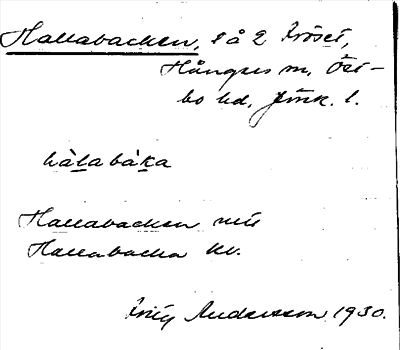 Hallabacken, l å 2 Fröset,
Hångers sn, Öst-
bo hd, Jönk. l.
hàlabàka
Hallabacken
Hallabacka kv.
Andersson 1930.